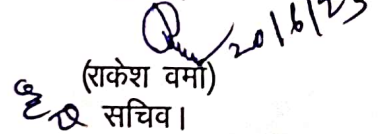 20/6/23
(राकेश वर्मा)
सचिव।